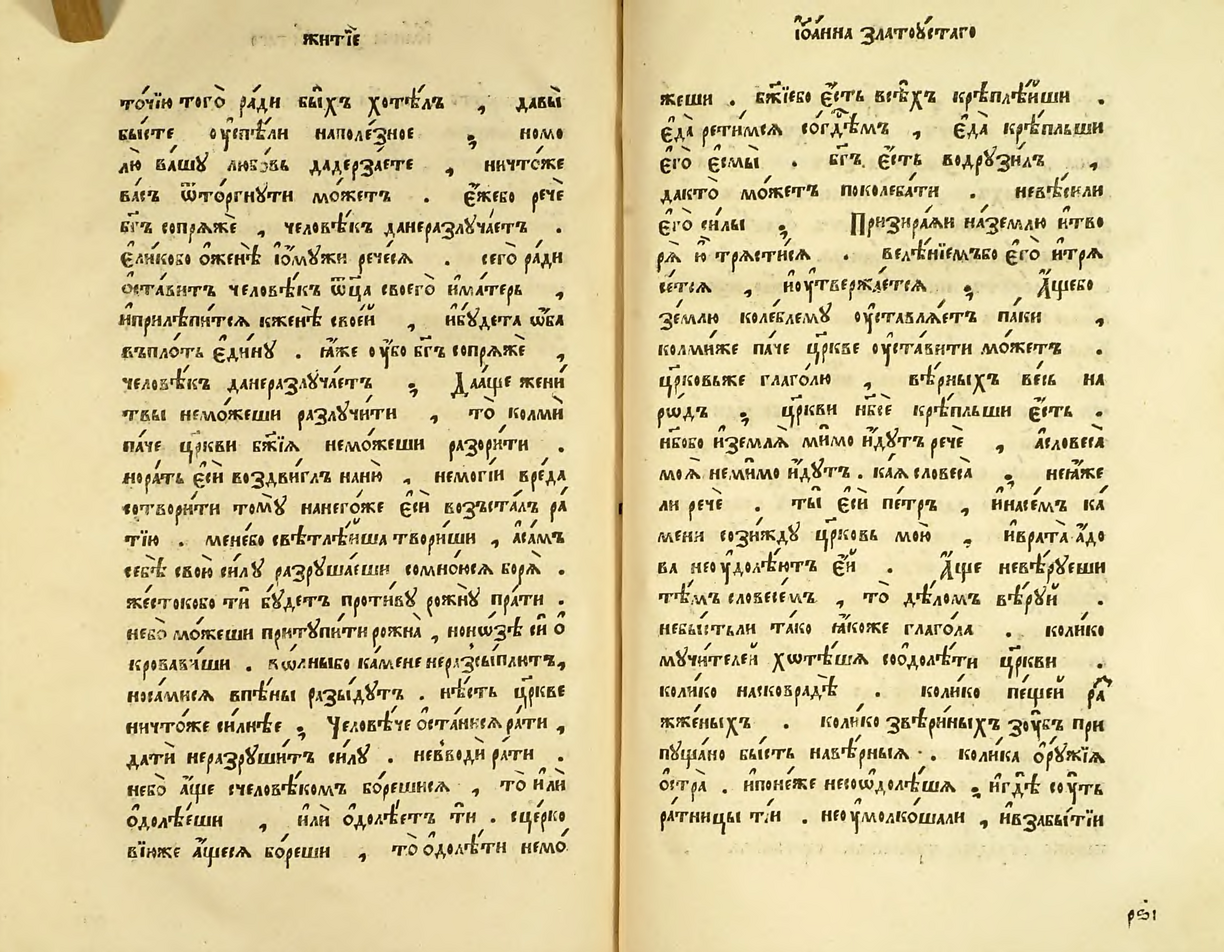 житїе
то́чїю того̀ ра́ди бы́хъ хотѣ́лъ , давы̀
бы́сте оу҆спѣ́ли напол́езное ; номо
лю̀ ва́шꙋ любо́вь дадерза́ете , ничто́же
ва́съ ѿто́ргнꙋти мо́жетъ . є҆́жебо рече
бг҃ъ сопрѧжѐ , человѣ́къ данеразлꙋча́етъ .
є҆ли́кобо о҆женѣ̀ і҆ѡмꙋ́жи рече́сѧ . сего̀ ра́ди
о҆ста́витъ человѣ́къ ѿц҃а своего̀ и҆ма́терь ,
и҆прилѣпи́тсѧ кженѣ̀ свое́й , и҆бꙋ́дета ѡ҆́ба
въпло́ть є҆ди́нꙋ . ꙗ҆́же оу҆̀бо бг҃ъ сопрѧжѐ ,
человѣ́къ данеразлꙋча́етъ ; Даа́ще жени́
твы немо́жеши разлꙋчи́ти , то̀ колмѝ
па́че цр҃кви бж҃їѧ немо́жеши разори́ти .
нора́ть є҆сѝ воздви́глъ наню̀ , немогі́й вре́да
сотвори́ти томꙋ̀ нанего́же є҆сѝ возъста́лъ ра́
тїю . мене́бо свѣтлѣ́йша твори́ши , а҆са́мъ
себѣ̀ свою̀ си́лꙋ разрꙋша́еши сомно́исѧ борѧ̀ .
жесто́кобо тѝ бꙋ́детъ проти́вꙋ рожнꙋ̀ пра́ти .
небо̀ мо́жеши притꙋпи́ти рожна̀ , нонѡ́зѣ сѝ о҆
крова́виши . во́лныбо ка́мене неразсы́плютъ,
носа́мисѧ впѣ́ны разы́дꙋтъ . нѣ́сть цр҃кве
ничто́же силнѣ́е ; Человѣ́че о҆ста́нисѧ ра́ти ,
датѝ неразрꙋши́тъ си́лꙋ . невводѝ ра́ти .
небо̀ а҆́ще счеловѣ́комъ бо́решисѧ , то̀ и҆лѝ
о҆долѣ́еши , и҆лѝ о҆долѣ́етъ тѝ . сце́рко
вїюже а҆́щесѧ бо́реши , то̀ о҆долѣ́ти немо́
і҆ѡа́нна златоꙋ́стаго
жеши . бж҃їебо є҆́сть всѣ́хъ крѣплѣ́йши .
є҆да̀ рети́мсѧ сог҃дⷭ҇ѣмъ , є҆да̀ крѣ́пльши
є҆го̀ є҆смы̀ . бг҃ъ є҆́сть водрꙋзи́лъ ,
дакто̀ мо́жетъ поколеба́ти . невѣ́сили
є҆го̀ си́лы ; Призира́ѧиназе́млю и҆тво
рѧ̀ ю҆̀ трѧсти́сѧ . велѣ́нїемъбо є҆го̀ и҆трѧ
се́тсѧ , и҆оутвержа́етсѧ ; А҆́щебо
зе́млю коле́блемꙋ оу҆ставлѧ́етъ па́ки ,
колми́же па́че цр҃кве оу҆ста́вити мо́жетъ .
цр҃ковьже глаго́лю , вѣ́рныхъ ве́сь на
рѡ́дъ ; цр҃кви нб҃сѐ крѣ́пльши є҆́сть .
нб҃обо и҆землѧ̀ ми́мо и҆́дꙋтъ речѐ , а҆словеса̀
моѧ̀ неми́мо и҆́дꙋтъ . ка́ѧ словеса̀ ; неꙗ҆́же
ли речѐ . ты̀ є҆сѝ пе́тръ , и҆насе́мъ ка́
мени сози́ждꙋ цр҃ковь мою̀ , и҆врата̀ а҆́до
ва неоу҆долѣ́ютъ є҆́й . А҆́ще невѣ́рꙋеши
тѣ́мъ словесе́мъ , то̀ дѣ́ломъ вѣ́рꙋй .
небы́стьли та́ко ꙗ҆́коже глаго́ла . коли́ко
мꙋчи́телей хѡтѣ́шѧ соодолѣ́ти цр҃кви .
коли́ко насковрадѣ̀ . коли́ко пеще́й ра
жже́ныхъ . коли́ко звѣри́ныхъ зоу҆́бъ при
пꙋща́но бы́сть навѣ́рныѧ . коли́ка о҆рꙋ́жїѧ
о҆́стра̀ . и҆поне́же несоѡдолѣ́шѧ ; и҆гдѣ̀ со́уть
ра́тницы ті́и . неоу҆мо́лкошали , и҆взабы́тїи
рѕ҃і